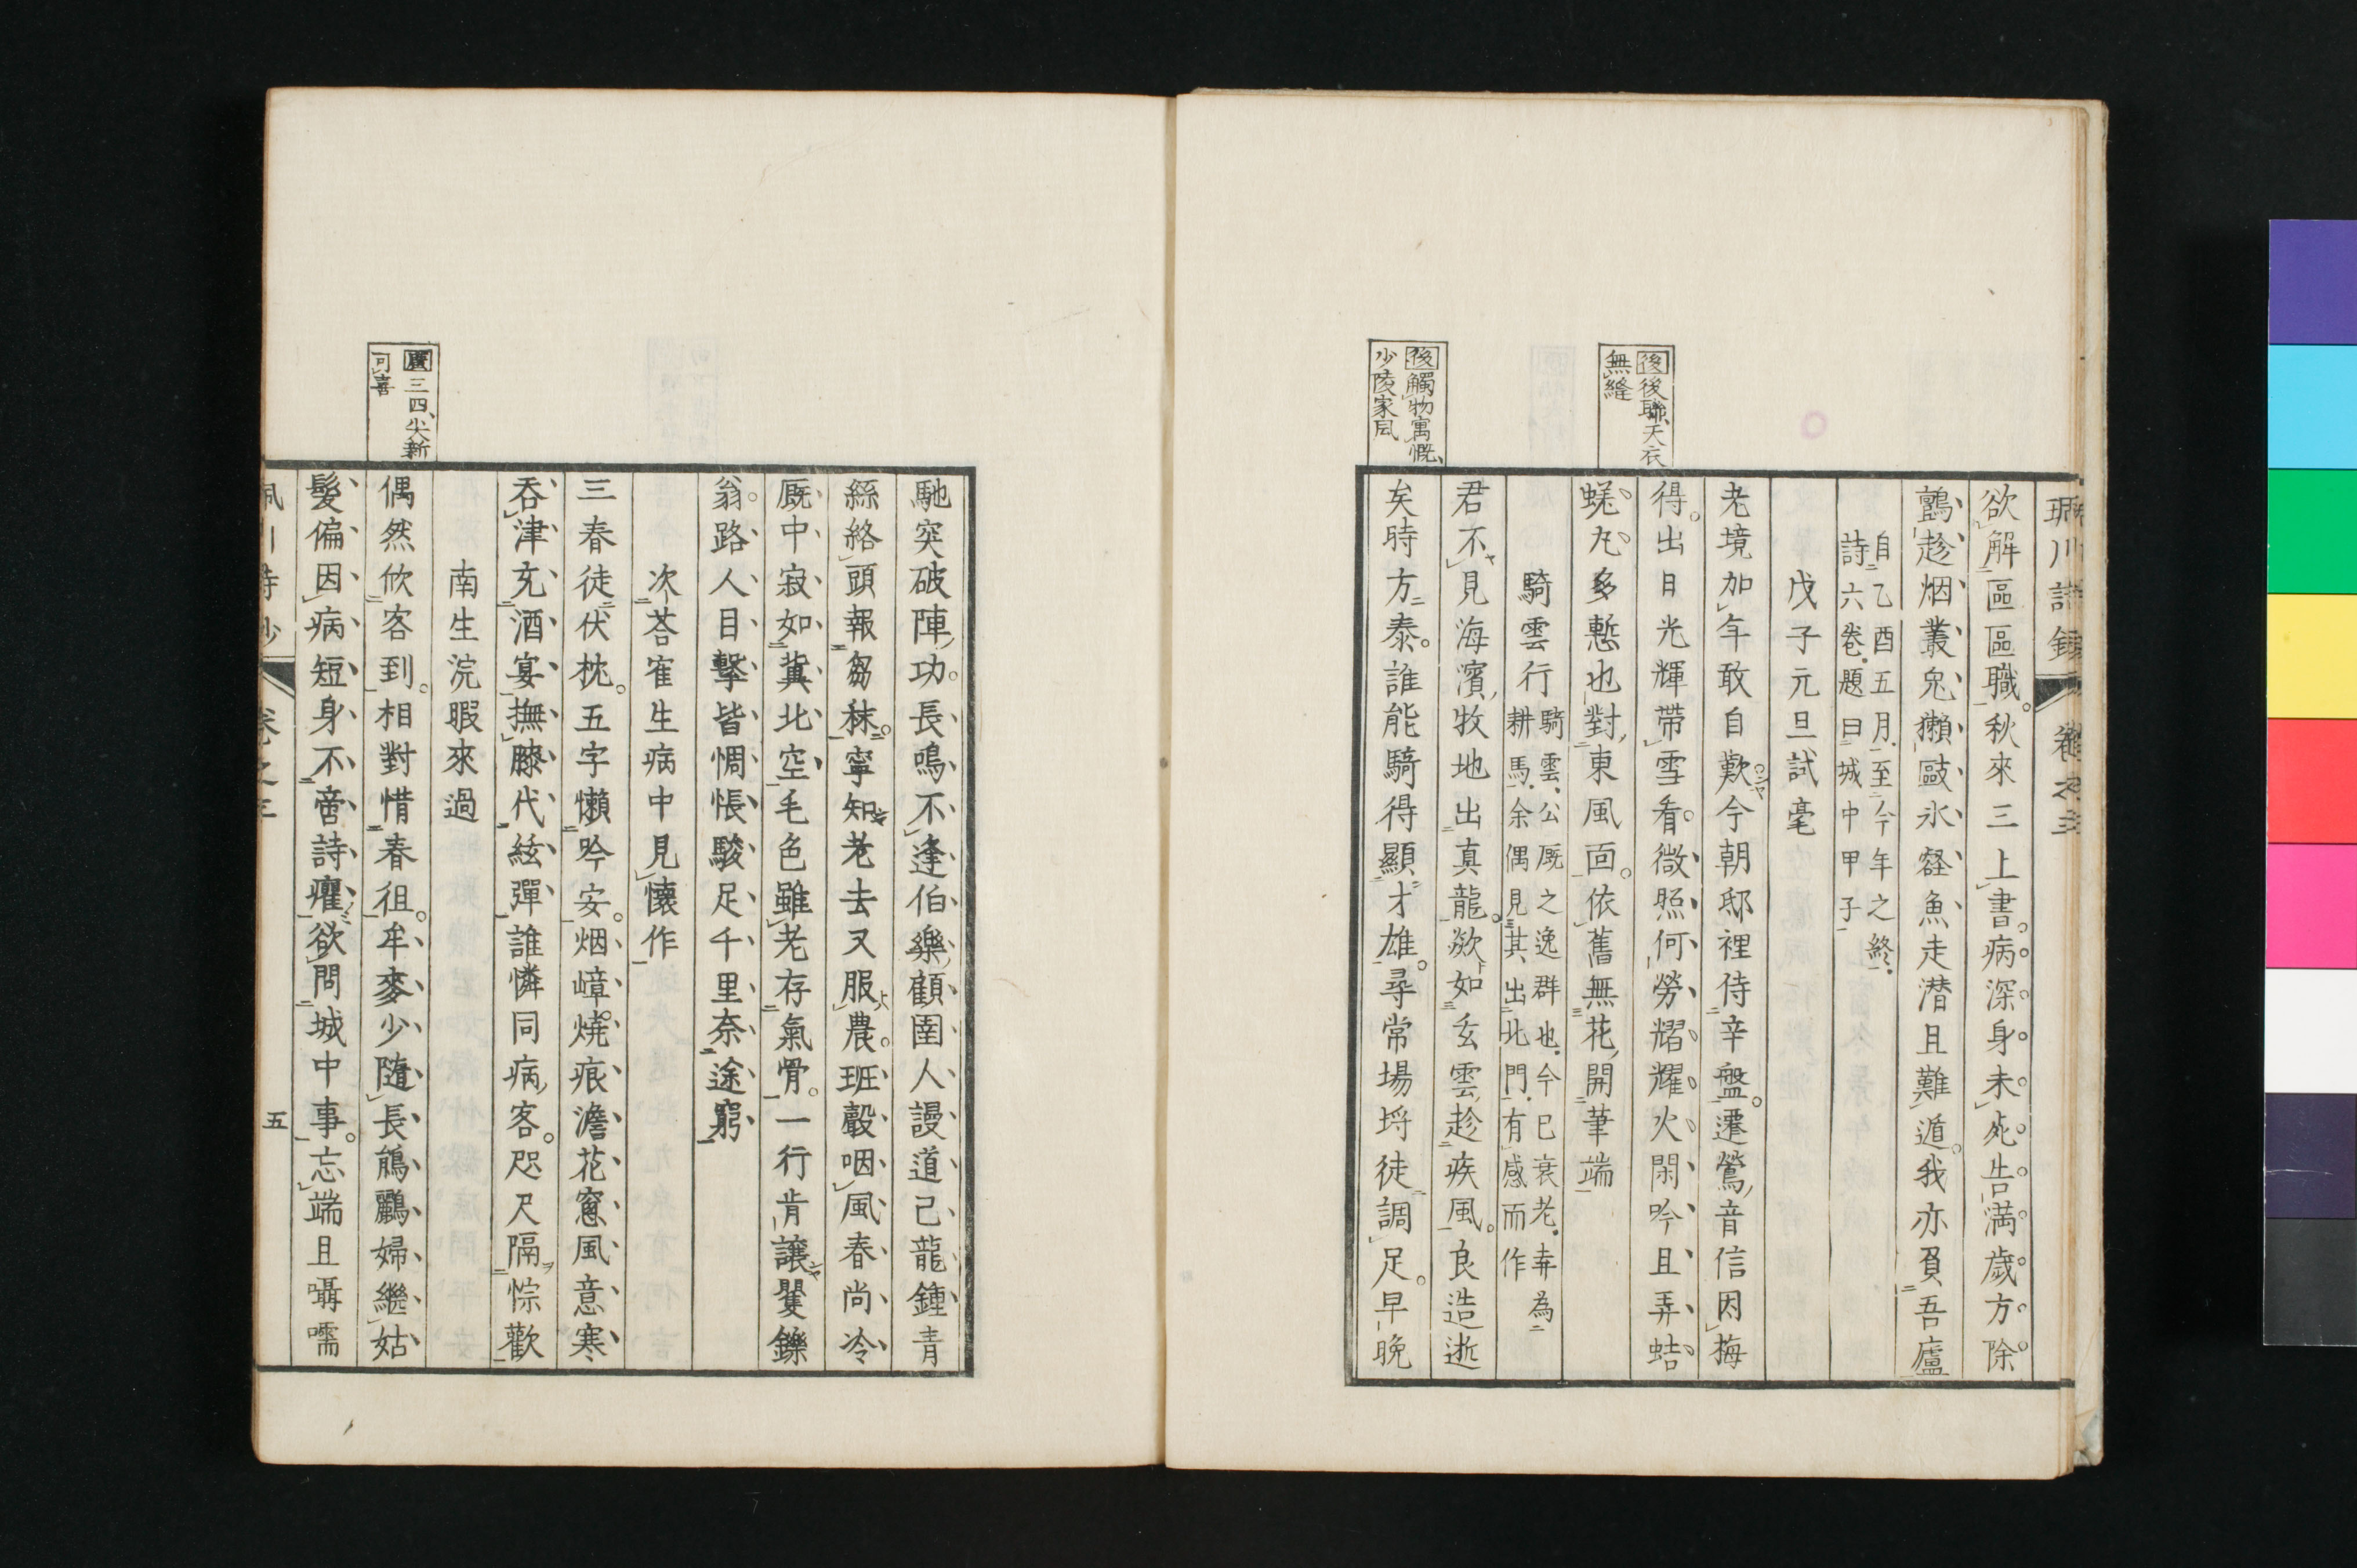 後後聯、天衣
無縫
後觸物寓慨、
少陵家風
珮川詩鈔 卷之三
欲解區區職。秋來三上書。病深身未死。告滿歲方除
鸇趁烟叢兔。獺敺氷窟魚。走潜且難遁。我亦買吾廬
自乙酉五月、至今年之終、
詩六卷、題曰城中甲子
戊子元旦試毫
老境加年敢自歎。今朝邸裡侍辛盤。遷鶯音信因梅
得。出日光輝帶雪看。微照何勞熠耀火。閑吟且弄蛣
蜣丸。多慙也對東風面。依舊無花開筆端
騎雲行
騎雲、公厩之逸群也、今已衰老、弃為
耕馬、余偶見其出北門、有感而作
君不見海濱牧地出真龍。欻如玄雲趁疾風。良造逝
矣時方泰。誰能騎得顯才雄。尋常場埒徒調足。早晚
廣三四、尖新
可喜
馳突破陣功。長鳴不逢伯樂顧。圉人謾道已龍鍾。青
絲絡頭報芻秣。寧知老去又服農。班聲咽風春尚冷
厩中寂如冀北空。毛色雖老存氣骨。一行肯讓矍鑠
翁。路人目擊皆惆悵。駿足千里奈途窮
次荅崔生病中見懷作
三春徒伏枕。五字懶吟安。烟嶂燒痕澹。花窓風意寒
吞津充酒宴。撫膝代絃彈。誰憐同病客。咫尺隔悰歡
南生浣暇來過
偶然欣客到。相對惜春徂。牟麥少隨長。鵃鸝婦繼姑
髮偏因病短。身不啻詩癯。欲問城中事。忘端且囁嚅
珮川詩鈔 卷之三 五